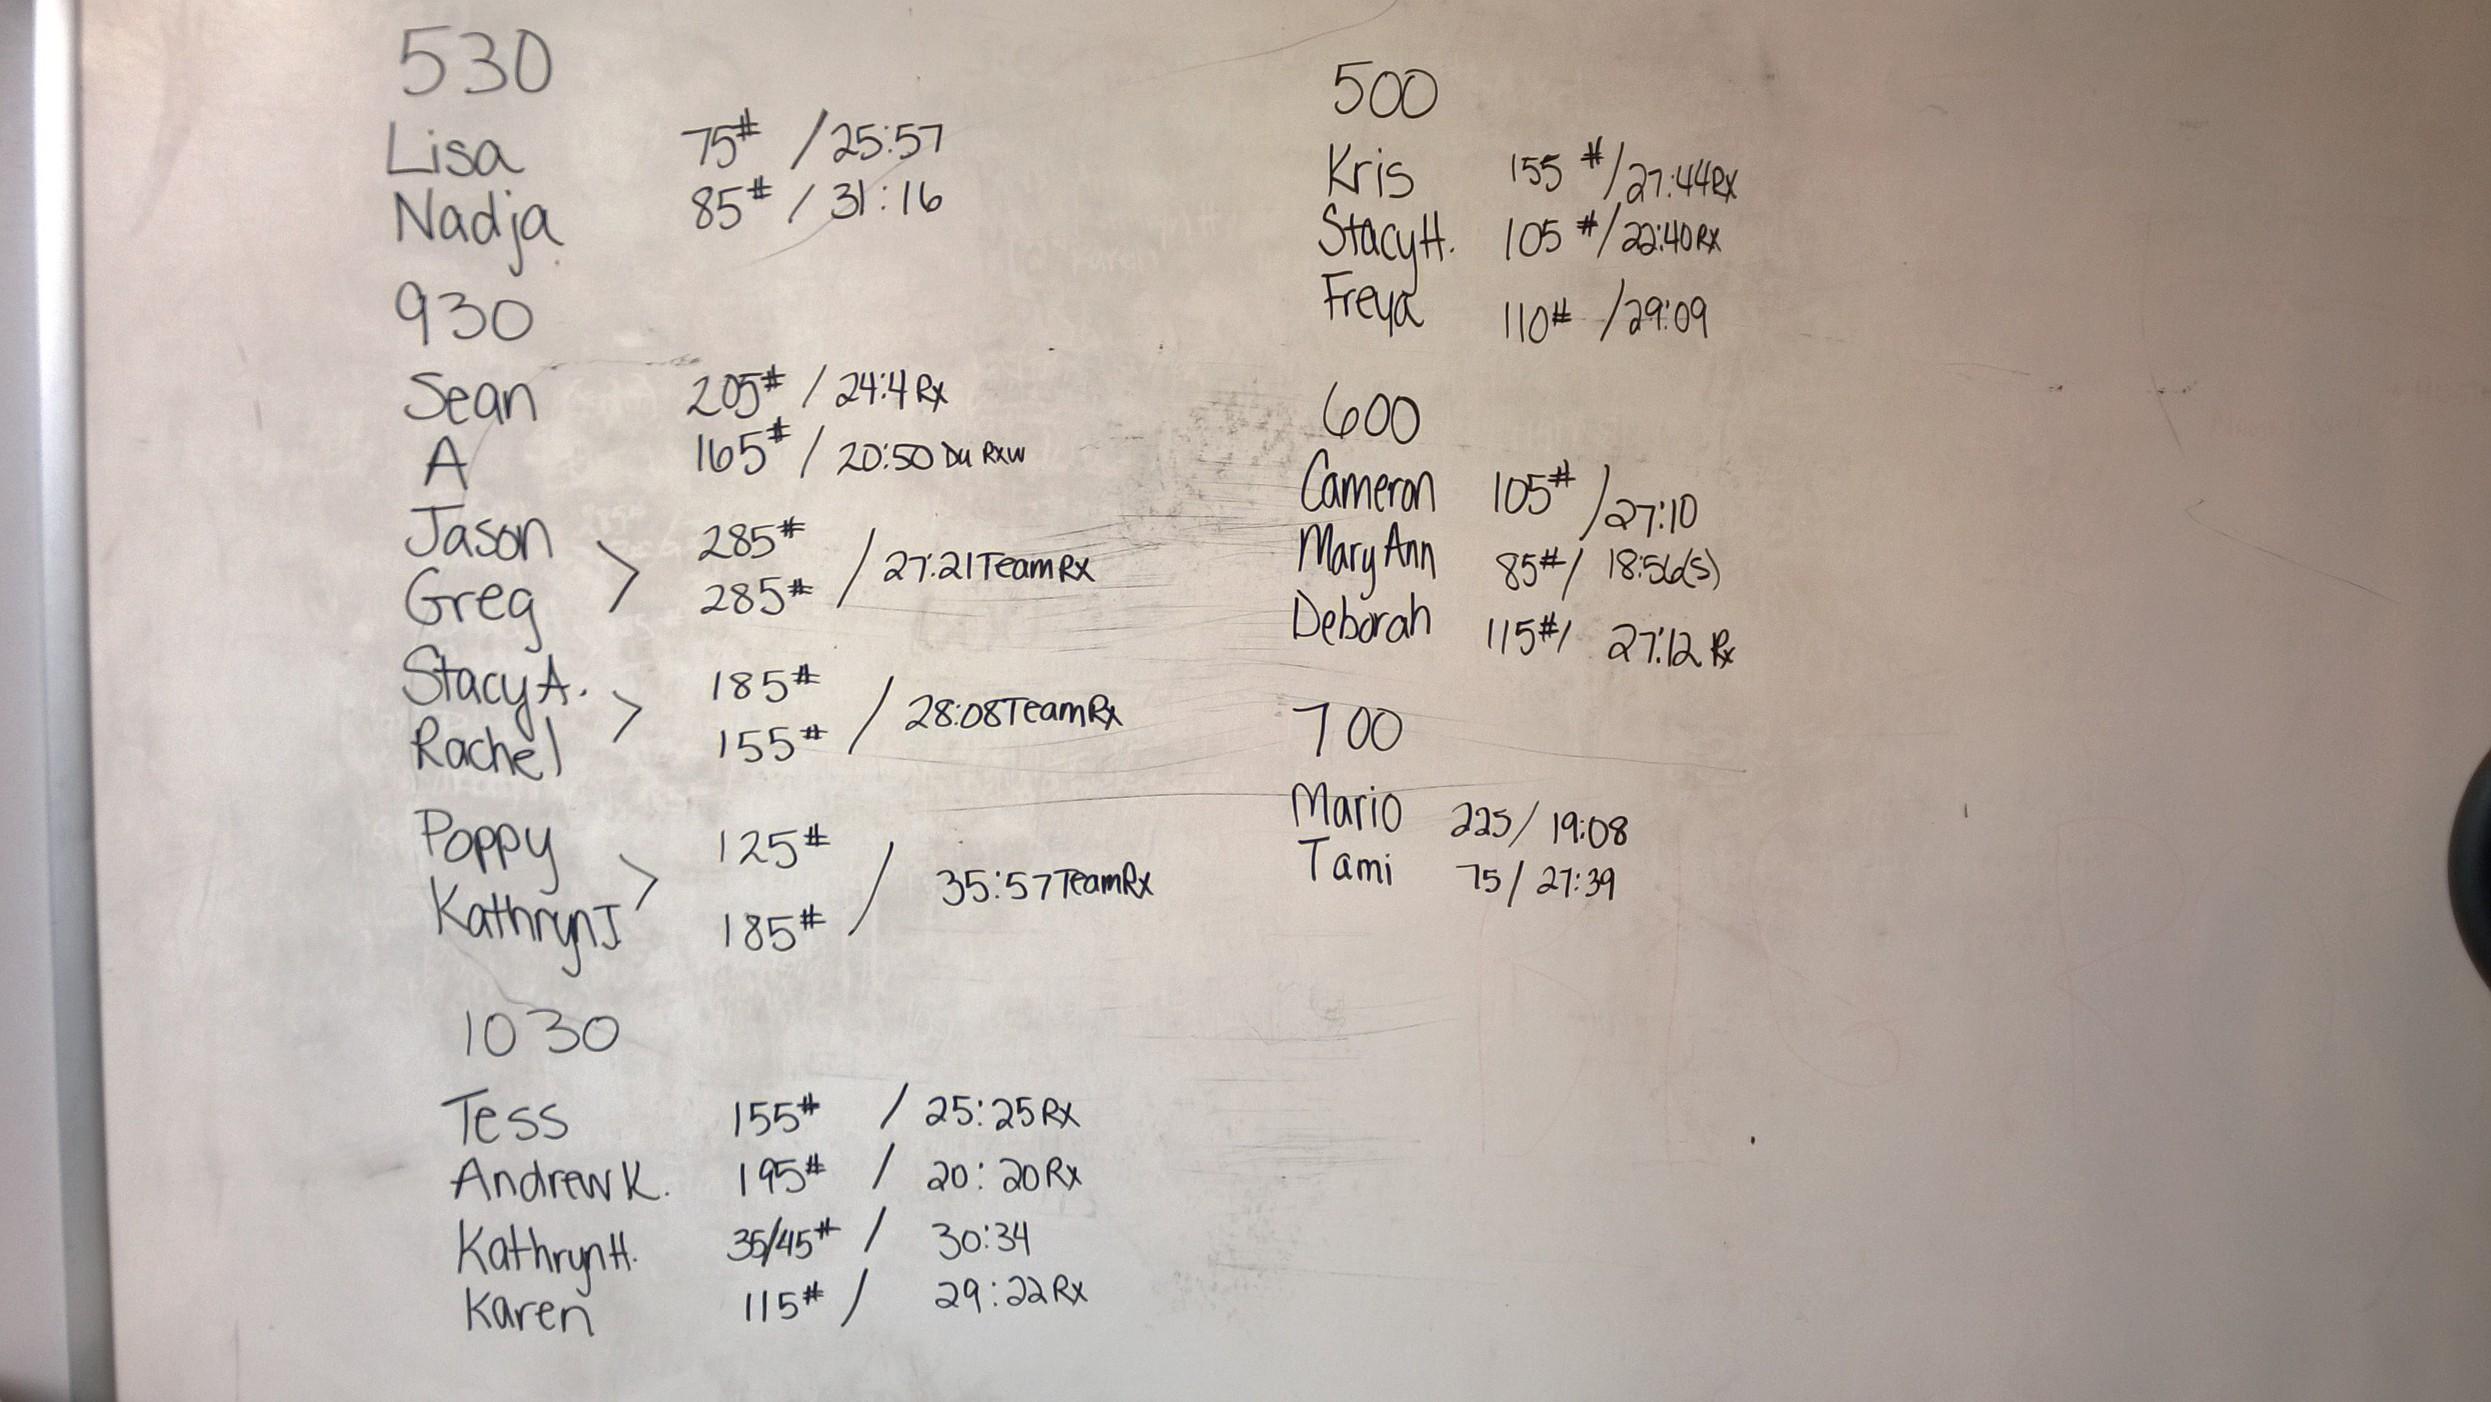 530
Lisa 75# / 25:57
Nadja 85# / 31:16
930
Sean 205# / 24:4 Rx
A 165# / 20:50 Du Rxw
Jason > 285# / 27:21 Team Rx
Greg 285#
Stacy A. > 185# / 28:08 Team Rx
Rachel 155#
Poppy > 125# / 35:57 Team Rx
Kathryn J 185#
1030
Tess 155# / 25:25 Rx
Andrew K. 195# / 20:20 Rx
Kathryn H. 35/45# / 30:34
Karen 115# / 29:22 Rx
500
Kris 155 # / 27:44 Rx
Stacy H. 105 # / 22:40 Rx
Freya 110# / 29:09
600
Cameron 105# / 27:10
Mary Ann 85# / 18:56(s)
Deborah 115# / 27:12 Rx
700
Mario 225 / 19:08
Tami 75 / 27:39